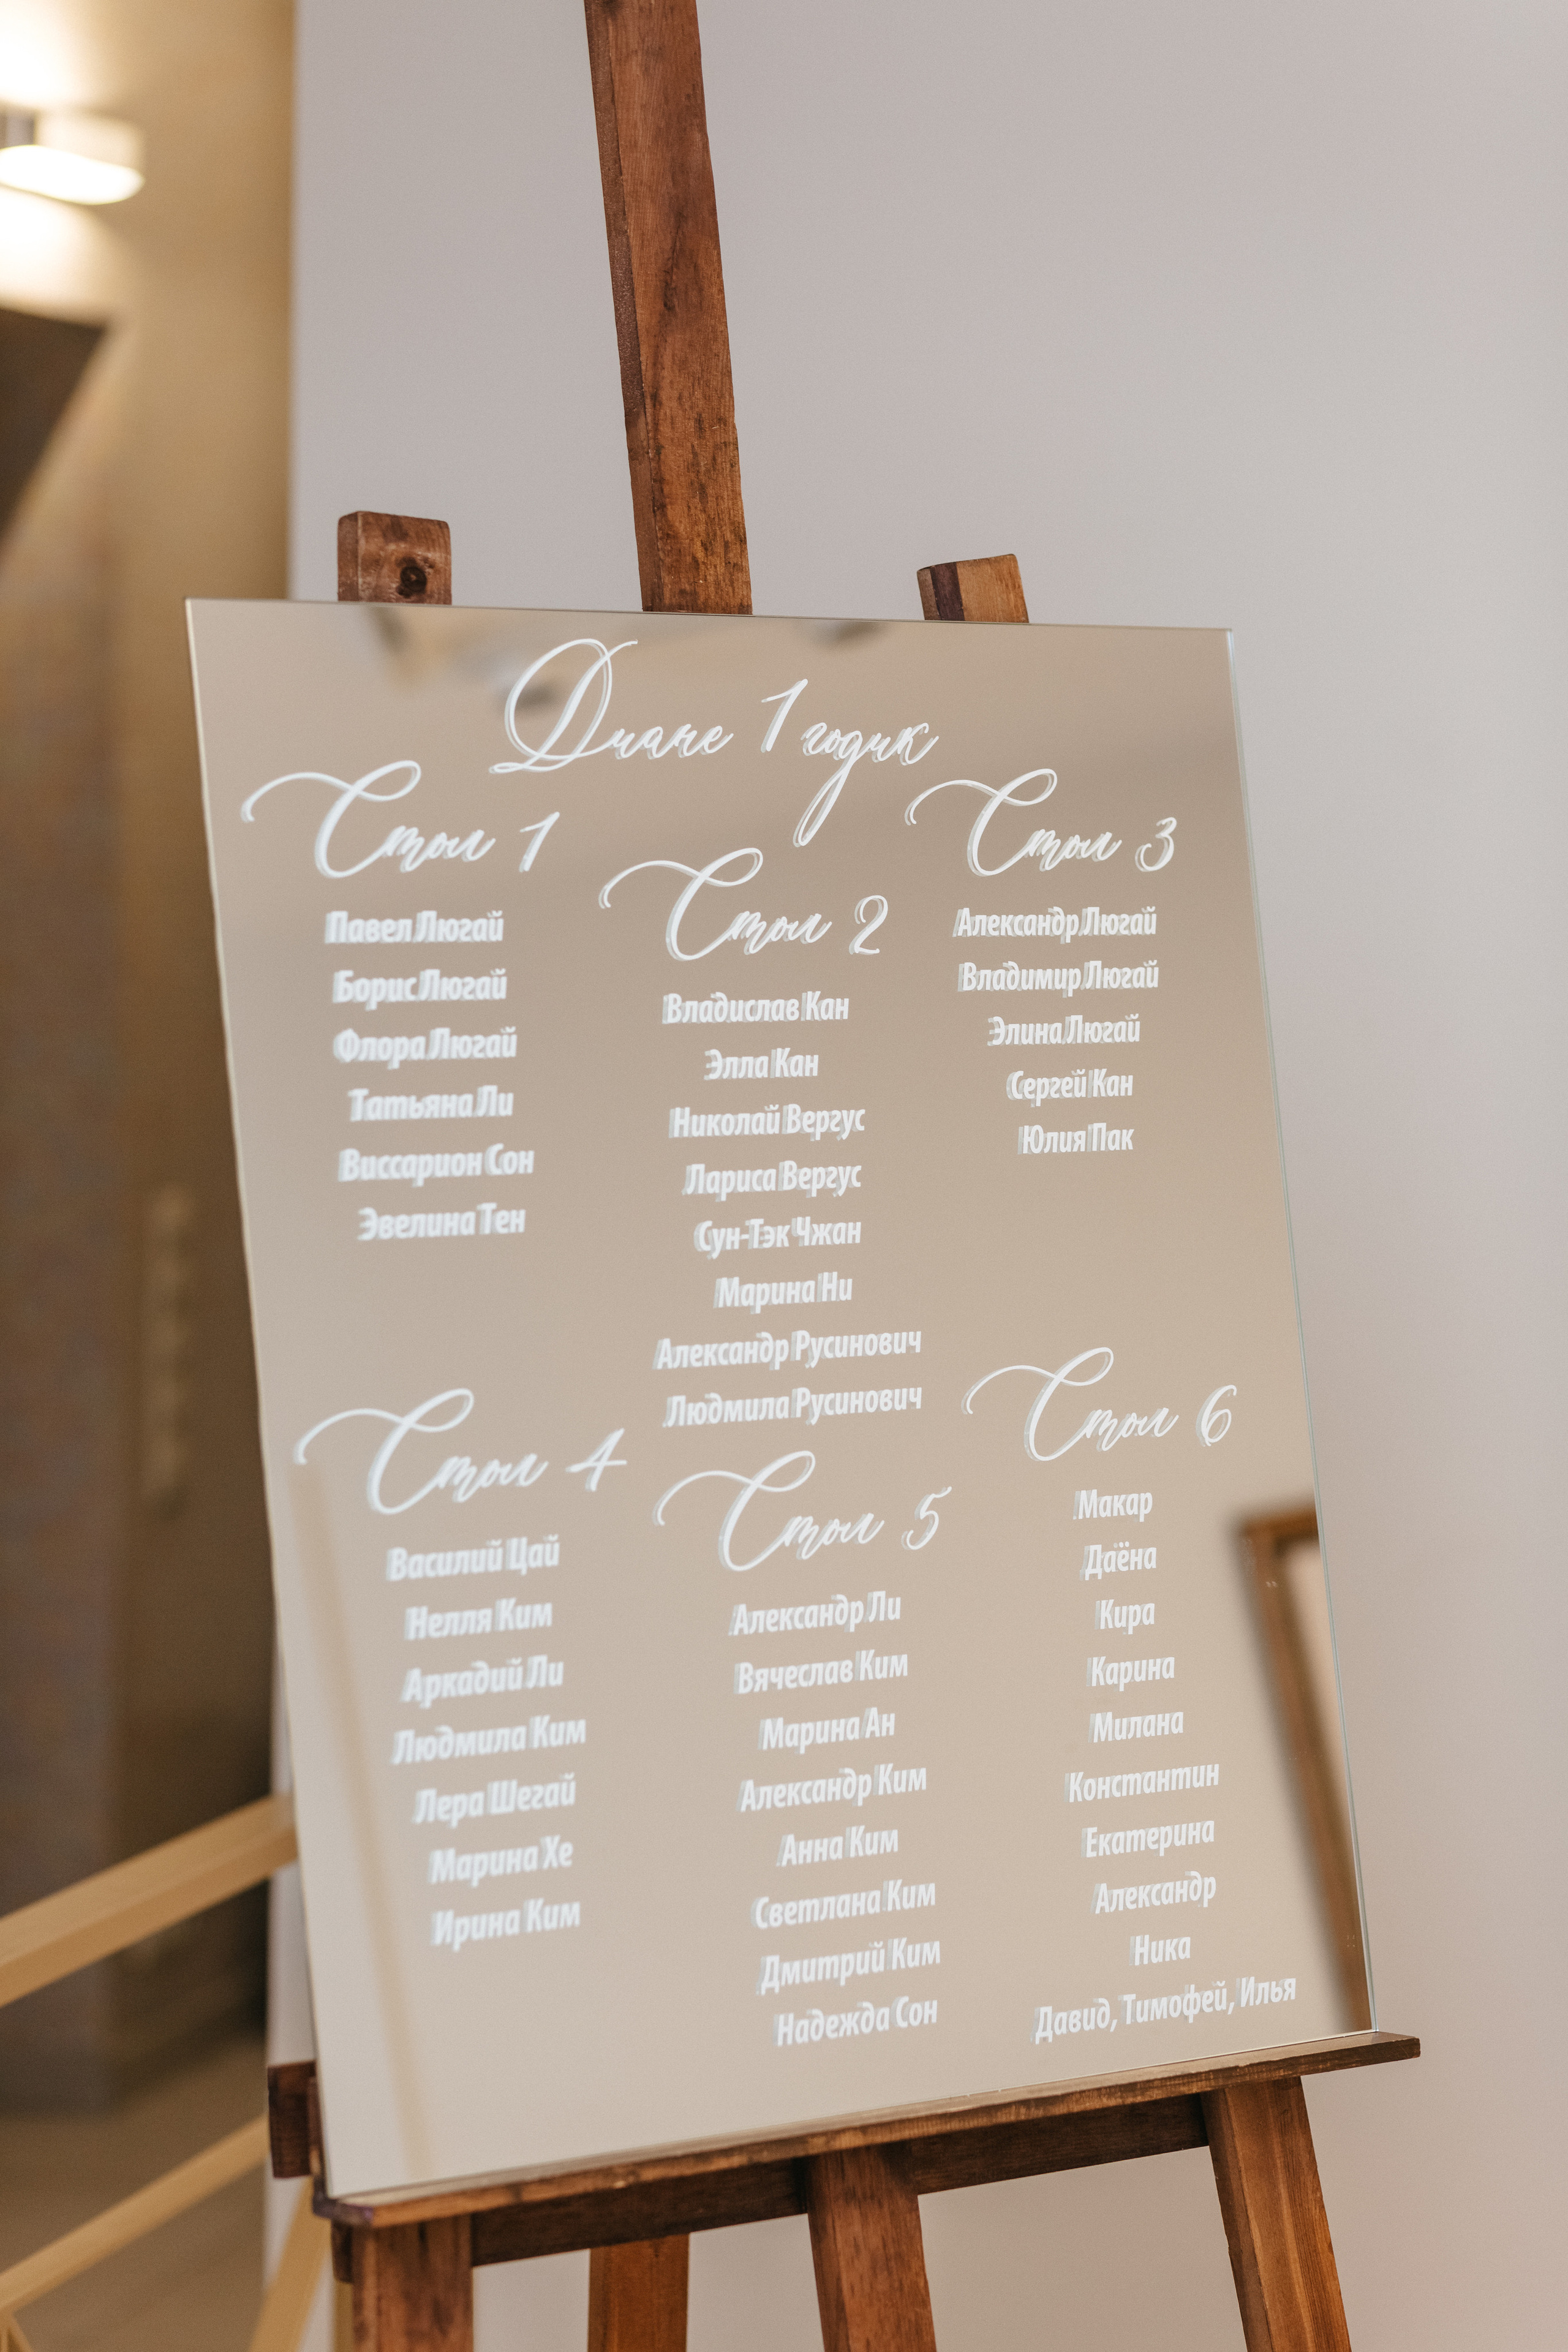 Диане 1 годик
Стол 1
Павел Люгай
Борис Люгай
Флора Люгай
Татьяна Ли
Виссарион Сон
Эвелина Тен
Стол 2
Владислав Кан
Элла Кан
Николай Вергус
Лариса Вергус
Сун-Тэк Чжан
Марина Ни
Александр Русинович
Людмила Русинович
Стол 3
Александр Люгай
Владимир Люгай
Элина Люгай
Сергей Кан
Юлия Пак
Стол 4
Василий Цай
Нелля Ким
Аркадий Ли
Людмила Ким
Лера Шегай
Марина Хе
Ирина Ким
Стол 5
Александр Ли
Вячеслав Ким
Марина Ан
Александр Ким
Анна Ким
Светлана Ким
Дмитрий Ким
Надежда Сон
Стол 6
Макар
Даёна
Кира
Карина
Милана
Константин
Екатерина
Александр
Ника
Давид, Тимофей, Илья